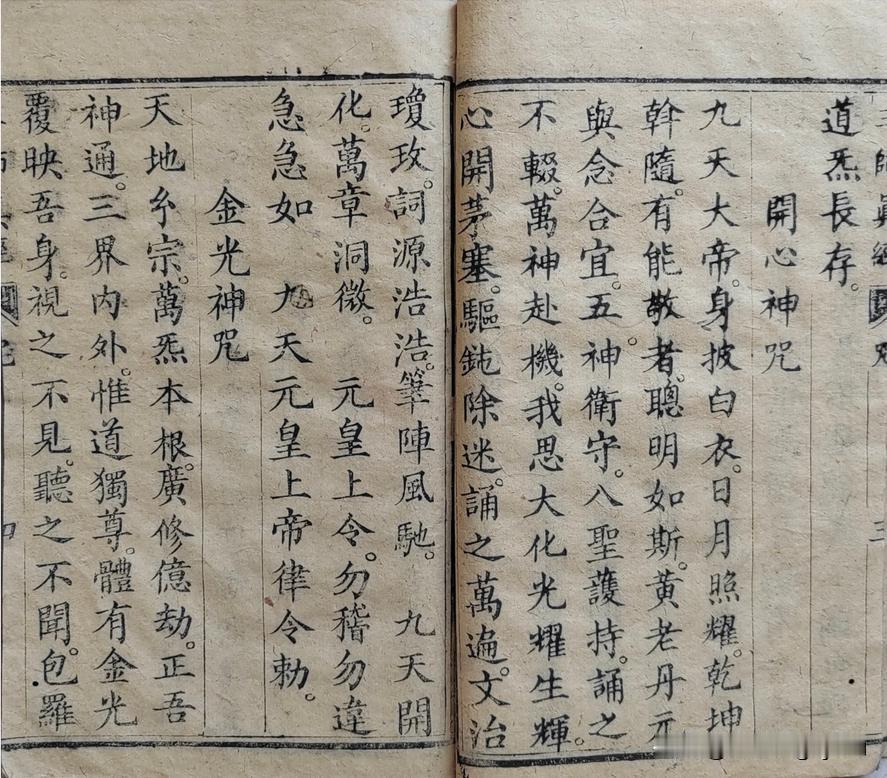 道炁長存。
開心神咒
九天大帝。身披白衣。日月照耀。乾坤
斡隨。有能敬者。聰明如斯。黃老丹元
與念合宜。五神衛守。八聖護持。誦之
不輟。萬神赴機。我思大化光耀生輝。
心開茅塞。驅鈍除迷。誦之萬遍。文治
三
瓊玫。詞源浩浩。筆陣風馳。九天開
化。萬章洞微。元皇上令。勿稽勿違
急急如九天元皇上帝律令勅。
金光神咒
天地玄宗。萬炁本根。廣修億劫。正吾
神通。三界內外。惟道獨尊。體有金光
覆映吾身。視之不見。聽之不聞。包羅
四